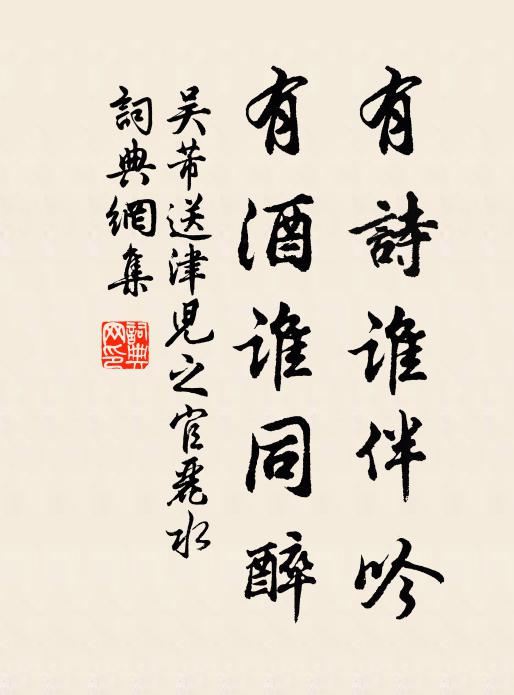 有詩誰伴吟
有酒誰同醉
吴芾送津兒之官麗水
詞典網集
詞典
网印